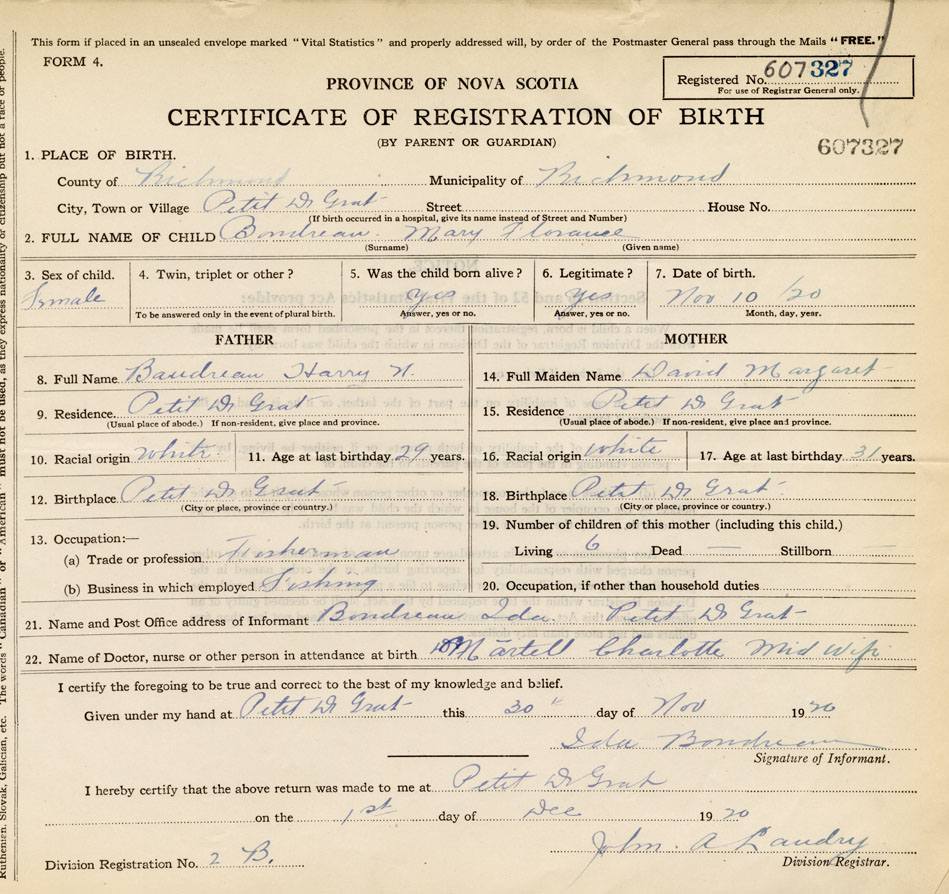 This form if placed in an unsealed envelope marked "Vital Statistics" and properly addressed will, by order of the Postmaster General pass through the Mails "FREE."
FORM 4.
Registered No. 607327
For use of Registrar General only.
PROVINCE OF NOVA SCOTIA
CERTIFICATE OF REGISTRATION OF BIRTH
(BY PARENT OR GUARDIAN)
607327
1. PLACE OF BIRTH.
County of Richmond Municipality of Richmond
City, Town or Village Petit D Grat Street House No.
(If birth occurred in a hospital, give its name instead of Street and Number)
2. FULL NAME OF CHILD Boudreau Mary Florance
(Surname) (Given name)
3. Sex of child. 4. Twin, triplet or other? 5. Was the child born alive? 6. Legitimate? 7. Date of birth.
Female yes yes Nov 10 /20
To be answered only in the event of plural birth. Answer, yes or no. Answer, yes or no. Month, day, year.
FATHER MOTHER
8. Full Name Baudreau Harry 14. Full Maiden Name David Margaret
9. Residence Petit D Grat 15. Residence Petit D Grat
(Usual place of abode.) If non-resident, give place and province. (Usual place of abode.) If non-resident, give place and province.
10. Racial origin White 11. Age at last birthday 29 years. 16. Racial origin White 17. Age at last birthday 31 years.
12. Birthplace Petit D Grat 18. Birthplace Petit D Grat
(City or place, province or country.) (City or place, province or country.)
13. Occupation:— 19. Number of children of this mother (including this child.)
(a) Trade or profession Fisherman Living 6 Dead — Stillborn —
(b) Business in which employed Fishing 20. Occupation, if other than household duties
21. Name and Post Office address of Informant Boudreau Ida Petit D Grat
22. Name of Doctor, nurse or other person in attendance at birth Martell Charlotte Mid Wife
I certify the foregoing to be true and correct to the best of my knowledge and belief.
Given under my hand at Petit D Grat this 30" day of Nov 1920
Ida Boudreau
Signature of Informant.
I hereby certify that the above return was made to me at Petit D Grat
on the 1st day of Dec 1920
John. A Landry
Division Registrar.
Division Registration No. 2 B.
Ruthenian, Slovak, Galician, etc. The words "Canadian" or "American" must not be used, as they express nationality or citizenship but not a race or people.